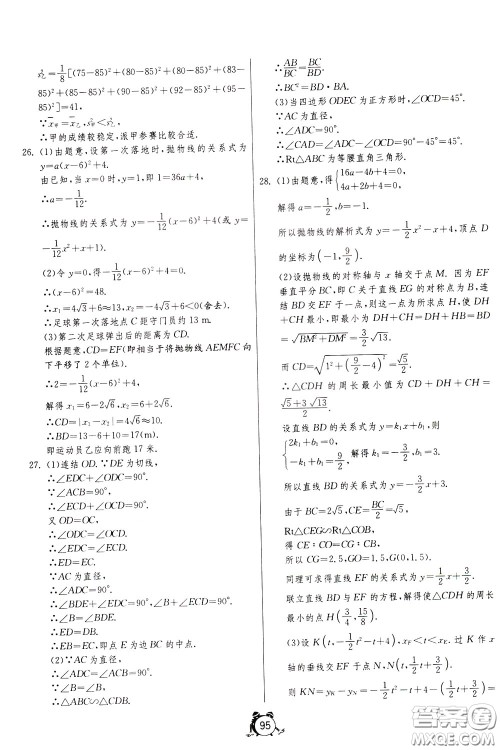 s²乙=1/8[(75-85)²+(80-85)²+(80-85)²+(83-
85)²+(85-85)²+(90-85)²+(92-85)²+(95-
85)²]=41,
∵x̄甲=x̄乙,s²甲<s²乙,
∴甲的成绩较稳定,派甲参赛比较合适.
26. (1)由题意,设第一次落地时,抛物线的关系式为
y=a(x-6)²+4.
由已知,当 x=0 时,y=1,即 1=36a+4,
∴a=-1/12.
∴抛物线的关系式为 y=-1/12(x-6)²+4(或 y=
-1/12x²+x+1).
(2)令 y=0,得-1/12(x-6)²+4=0,
∴(x-6)²=48.
∴x₁=4√3+6≈13,x₂=-4√3+6<0(舍去).
∴足球第一次落地点 C 距守门员约 13 m.
(3)第二次足球弹出后的距离为 CD.
根据题意,CD=EF(即相当于将抛物线 AEMFC 向
下平移了 2 个单位).
∴2=-1/12(x-6)²+4,
解得 x₁=6-2√6,x₂=6+2√6.
∴CD=|x₁-x₂|=4√6≈10.
∴BD=13-6+10=17(m).
即运动员乙应向前跑 17 米.
27. (1)连结 OD. ∵DE 为切线,
∴∠EDC+∠ODC=90°.
∵∠ACB=90°,
∴∠ECD+∠OCD=90°.
又 OD=OC,
∴∠ODC=∠OCD.
∴∠EDC=∠ECD.
∴ED=EC.
∵AC 为直径,
∴∠ADC=90°.
∴∠BDE+∠EDC=90°,∠B+∠ECD=90°.
∴∠B=∠BDE.
∴ED=EB.
∴EB=EC,即点 E 为边 BC 的中点.
(2)∵AC 为直径,
∴∠ADC=∠ACB=90°.
又∠B=∠B,
∴△ABC∽△CBD.
∴AB/BC=BC/BD.
∴BC²=BD·BA.
(3)当四边形 ODEC 为正方形时,∠OCD=45°.
∵AC 为直径,
∴∠ADC=90°.
∴∠CAD=∠ADC-∠OCD=90°-45°=45°.
∴Rt△ABC 为等腰直角三角形.
28. (1)由题意,得{16a-4b+4=0, 4a+2b+4=0.
解得 a=-1/2,b=-1.
所以抛物线的解析式为 y=-1/2x²-x+4,顶点 D
的坐标为(-1,9/2).
(2)设抛物线的对称轴与 x 轴交于点 M. 因为 EF
垂直平分 BC,即 C 关于直线 EG 的对称点为 B,连
结 BD 交 EF 于一点,则这一点为所求点 H,使 DH
+CH 最小,即最小为 DH+CH=DH+HB=BD=
√(BM²+DM²)=3/2√13.
而 CD=√(1²+(9/2-4)²)=√5/2.
∴△CDH 的周长最小值为 CD+DH+CH=
(√5+3√13)/2.
设直线 BD 的关系式为 y=k₁x+b₁,则
{2k₁+b₁=0, -k₁+b₁=9/2, 解得 k₁=-3/2,b₁=3.
所以直线 BD 的关系式为 y=-3/2x+3.
由于 BC=2√5,CE=BC/2=√5,
Rt△CEG∽Rt△COB,
得 CE:CO=CG:CB.
所以 CG=2.5,GO=1.5,G(0,1.5).
同理可求得直线 EF 的关系式为 y=1/2x+3/2.
联立直线 BD 与 EF 的方程,解得使△CDH 的周长
最小的点 H(3/4,15/8).
(3)设 K(t,-1/2t²-t+4),xF<t<xE. 过 K 作 x
轴的垂线交 EF 于点 N,N(t,1/2t+3/2),
则 KN=yK-yN=-1/2t²-t+4-(1/2t+3/2)=
95